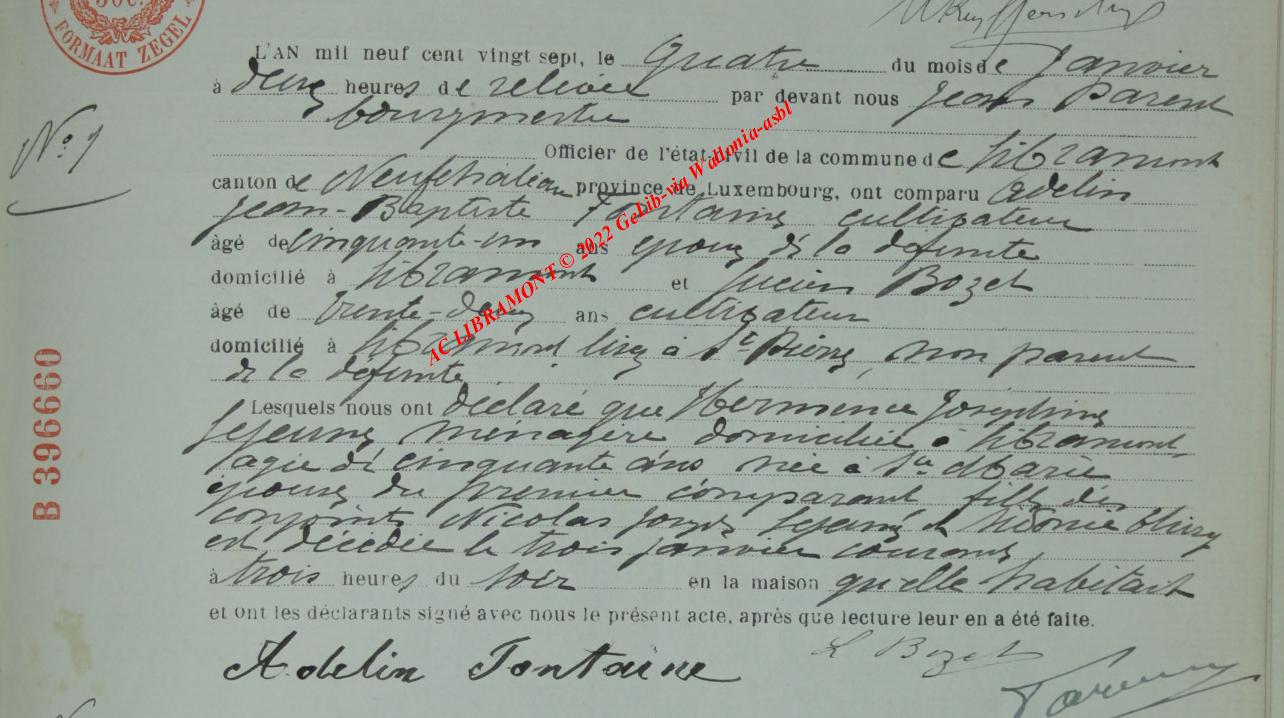 FORMAAT ZEGEL
L'AN mil neuf cent vingt sept, le Quatre du mois de Janvier
à deux heures de relevée par devant nous Jean Parent
bourgmestre
N° 1
Officier de l'état-civil de la commune de Libramont
canton de Neufchateau province de Luxembourg, ont comparu Adelin
Jean-Baptiste Fontaine cultivateur
âgé de cinquante-un ans époux de la défunte
domicilié à Libramont et Lucien Bozet
âgé de trente-deux ans cultivateur
domicilié à Libramont à St Pierre, non parent
de la défunte
Lesquels nous ont déclaré que Hermence Joséphine
Lejeune ménagère domiciliée à Libramont,
agée de cinquante ans née à Ste Marie
épouse du premier comparant fille des
conjoints Nicolas Joseph Lejeune et
est décédée le trois janvier courant,
à trois heures du soir en la maison qu'elle habitait
et ont les déclarants signé avec nous le présent acte, après que lecture leur en a été faite.
Adelin Fontaine
L Bozet
Parent
B 396660
AC LIBRAMONT © 2022 GeLib-via Wallonia-asbl